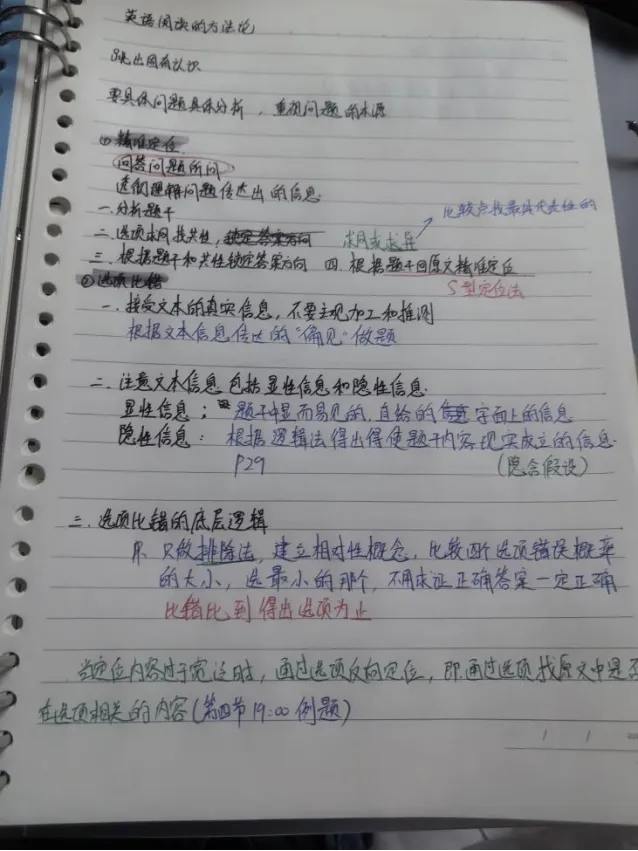 英语阅读的方法论
跳出固有认识
要具体问题具体分析，重视问题的本源
①精准定位
回答问题所问
透彻理解问题传达出的信息
一.分析题干
二.选项求同找共性，锁定答案方向 求同或求异 比较点找最具代表性的
三.根据题干和共性锁定答案方向 四.根据题干回原文精准定位
S型定位法
②选项比错
一.接受文本的真实信息，不要主观加工和推测
根据文本信息传达的“偏见”做题
二.注意文本信息包括显性信息和隐性信息
显性信息：题干中显而易见的，直给的字面上的信息
隐性信息：根据逻辑法得出得使题干内容现实成立的信息
P29 (隐含假设)
三.选项比错的底层逻辑
只做排除法，建立相对性概念，比较四个选项错误概率
的大小，选最小的那个，不用求证正确答案一定正确
比错比到得出选项为止
当定位内容过于宽泛时，通过选项反向定位，即通过选项找原文中是否
在选项相关的内容(第四节19:00例题)